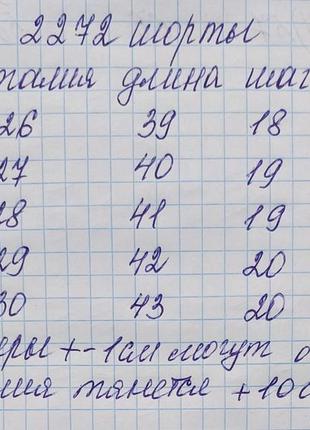 2272 шорты
талия длина шаг
26 39 18
27 40 19
28 41 19
29 42 20
30 43 20
еры +-1см могут
ия тянется +10с